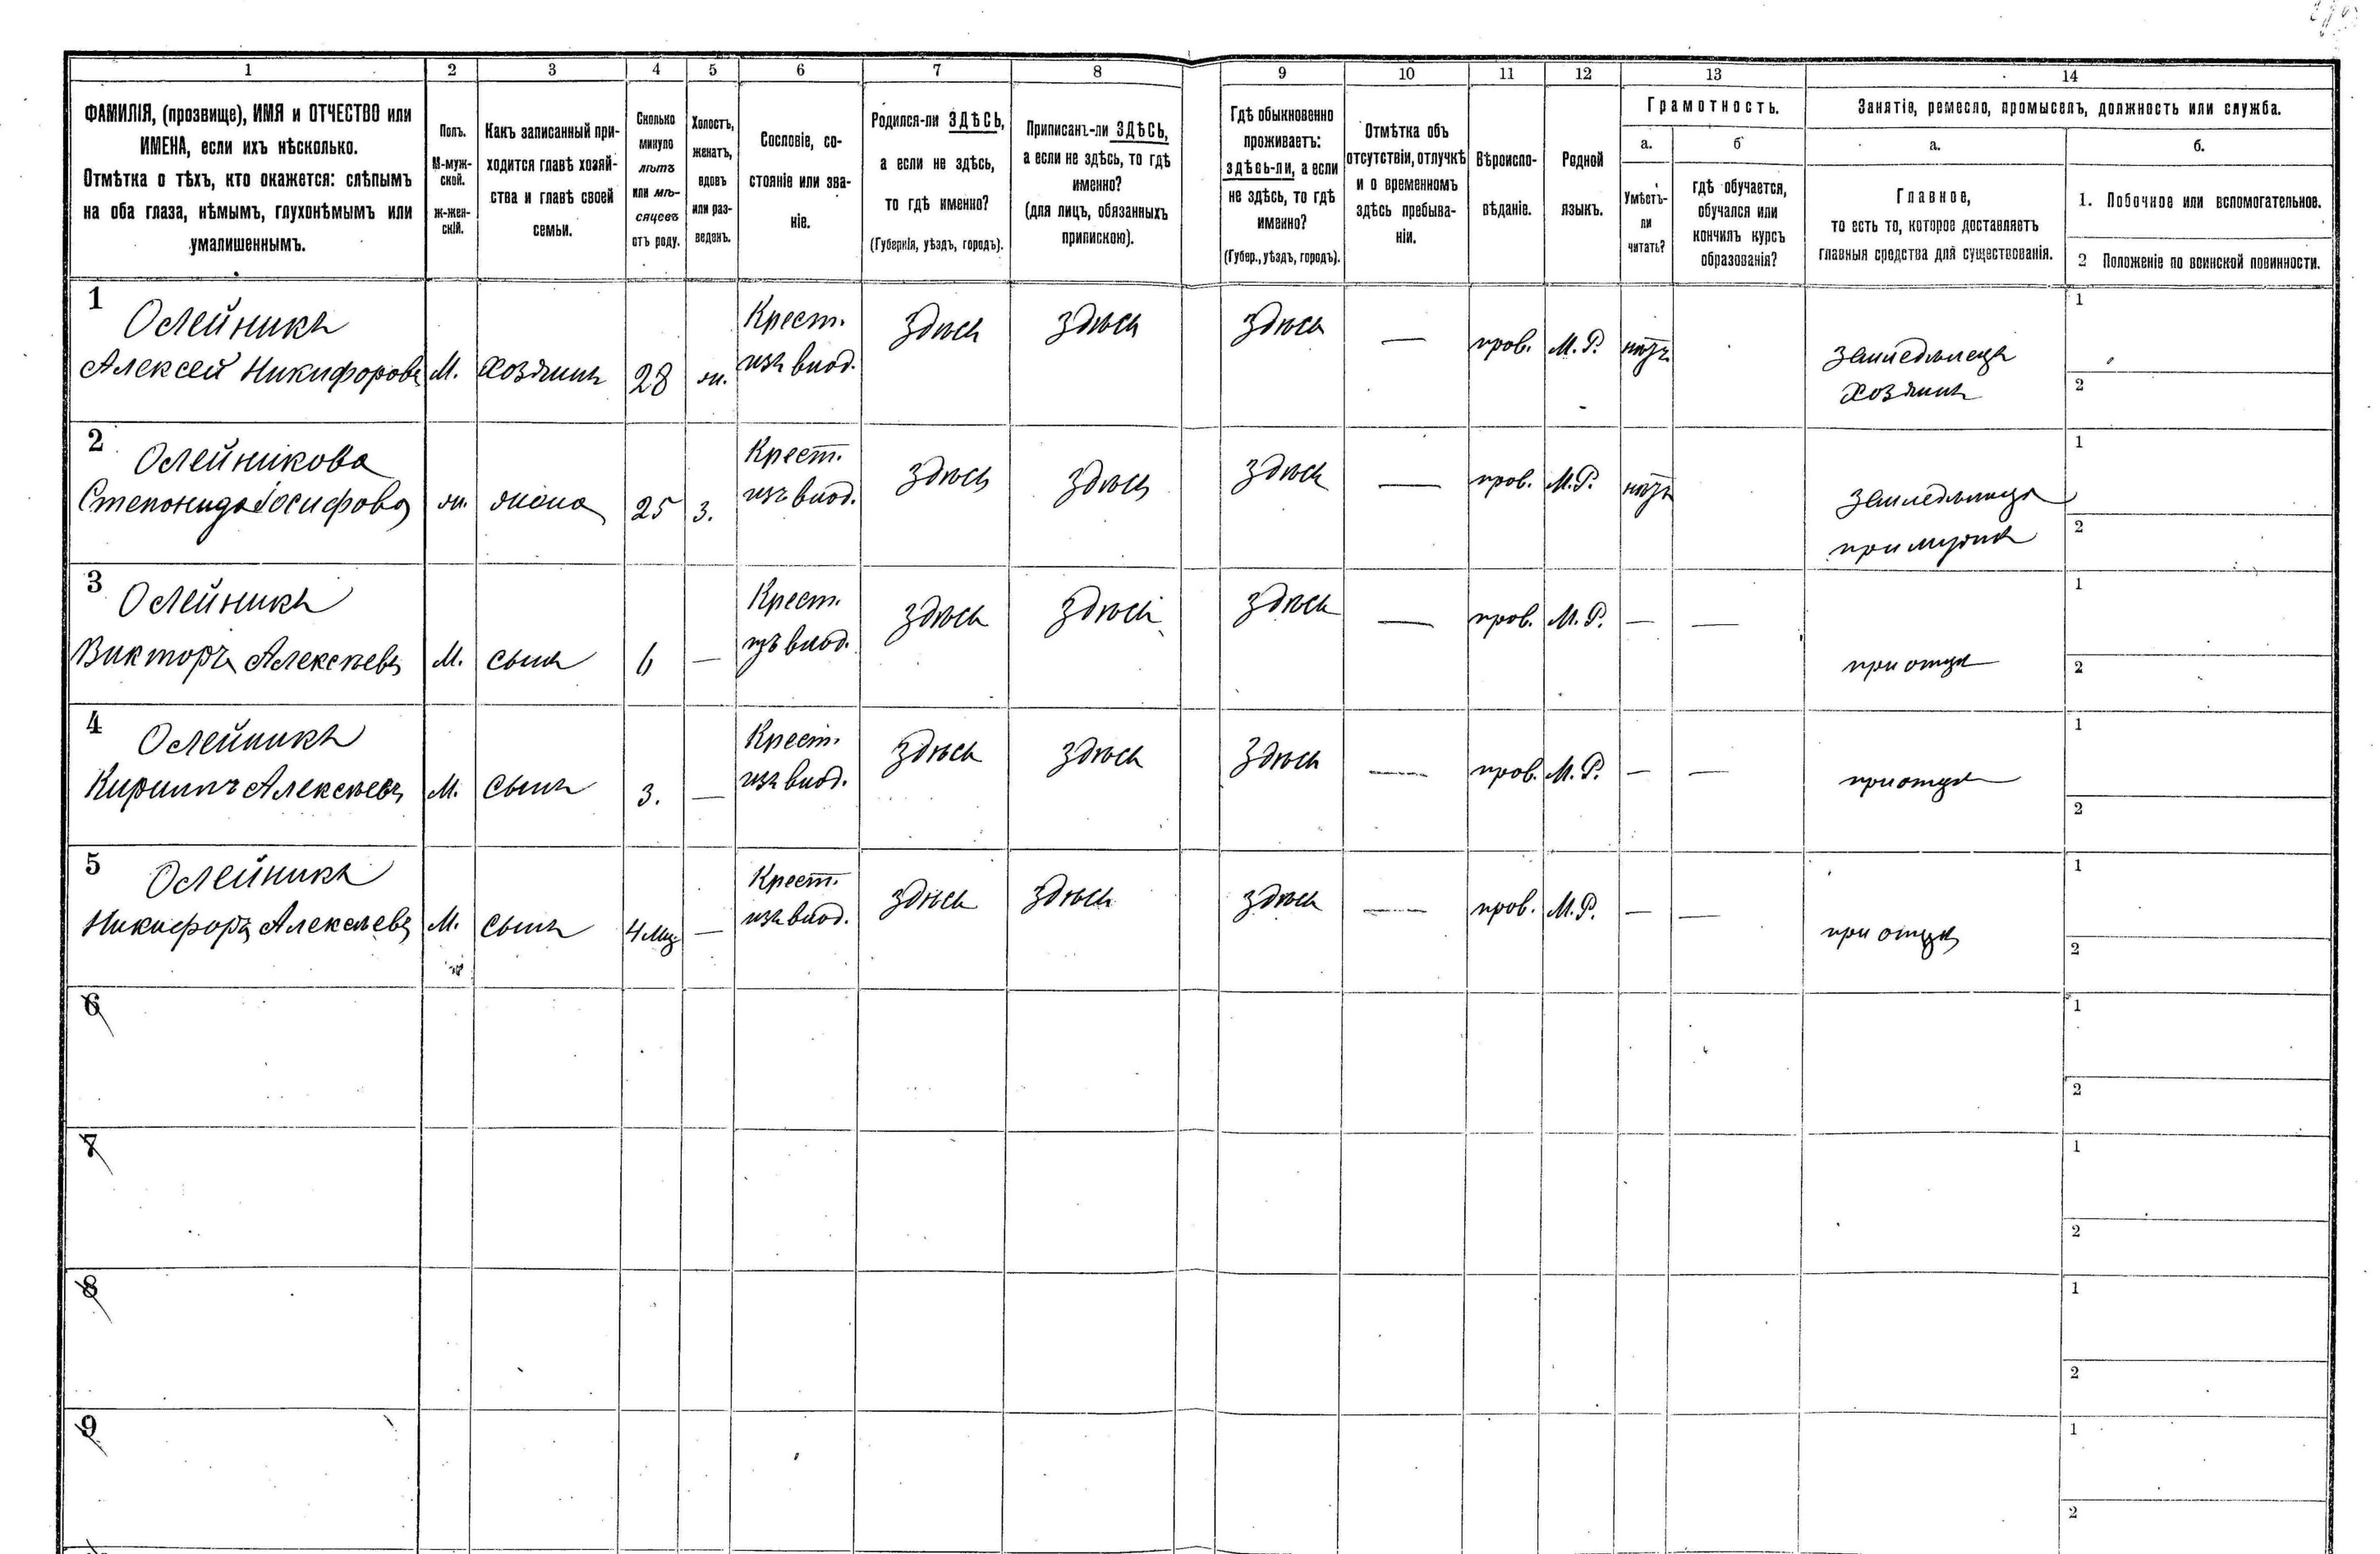 1 2 3 4 5 6 7 8 9 10 11 12 13 14
ФАМИЛІЯ, (прозвище), ИМЯ и ОТЧЕСТВО или
ИМЕНА, если ихъ нѣсколько.
Отмѣтка о тѣхъ, кто окажется: слѣпымъ
на оба глаза, нѣмымъ, глухонѣмымъ или
умалишеннымъ.
Полъ.
М-муж-
ской.
ж-жен-
скій.
Какъ записанный при-
ходится главѣ хозяй-
ства и главѣ своей
семьи.
Сколько
минуло
лѣтъ
или мѣ-
сяцевъ
отъ роду.
Холостъ,
женатъ,
вдовъ
или раз-
веденъ.
Сословіе, со-
стояніе или зва-
ніе.
Родился-ли ЗДѢСЬ,
а если не здѣсь,
то гдѣ именно?
(Губернія, уѣздъ, городъ).
Приписанъ-ли ЗДѢСЬ,
а если не здѣсь, то гдѣ
именно?
(для лицъ, обязанныхъ
припискою).
Гдѣ обыкновенно
проживаетъ:
здѣсь-ли, а если
не здѣсь, то гдѣ
именно?
(Губер., уѣздъ, городъ).
Отмѣтка объ
отсутствіи, отлучкѣ
и о временномъ
здѣсь пребыва-
ніи.
Вѣроиспо-
вѣданіе.
Родной
языкъ.
Грамотность.
а.
Умѣетъ-
ли
читать?
б
гдѣ обучается,
обучался или
кончилъ курсъ
образованія?
Занятіе, ремесло, промыселъ, должность или служба.
а.
Главное,
то есть то, которое доставляетъ
главныя средства для существованія.
б.
1. Побочное или вспомогательное.
2 Положеніе по воинской повинности.
1
Олейникъ
Алексей Никифоровъ
М.
хозяинъ
28
ж.
Крест.
изъ влад.
здѣсь
здѣсь
здѣсь
—
прав.
М.Р.
нѣтъ
земледѣлецъ
хозяинъ
1
2
2
Олейникова
Степонида Іосифова
ж.
жена
25
з.
Крест.
изъ влад.
здѣсь
здѣсь
здѣсь
—
прав.
М.Р.
нѣтъ
земледѣлица
при мужѣ
1
2
3
Олейникъ
Викторъ Алексѣевъ
М.
сынъ
6
—
Крест.
изъ влад.
здѣсь
здѣсь
здѣсь
—
прав.
М.Р.
—
—
при отцѣ
1
2
4
Олейникъ
Кириллъ Алексѣевъ
М.
сынъ
3.
—
Крест.
изъ влад.
здѣсь
здѣсь
здѣсь
—
прав.
М.Р.
—
—
при отцѣ
1
2
5
Олейникъ
Никифоръ Алексѣевъ
М.
сынъ
4 мц
—
Крест.
изъ влад.
здѣсь
здѣсь
здѣсь
—
прав.
М.Р.
—
—
при отцѣ
1
2
6
1
2
7
1
2
8
1
2
9
1
2